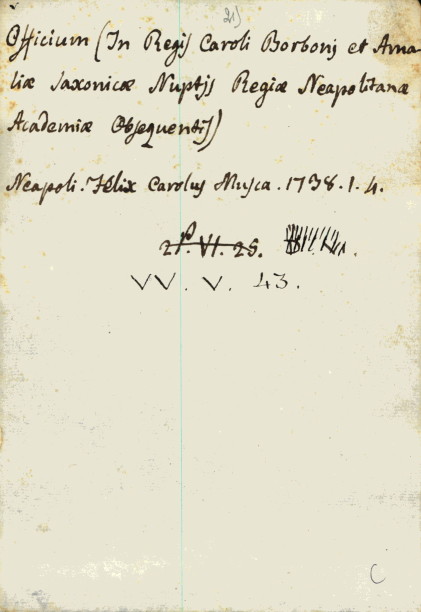 21)
Officium (In Regis Caroli Borbonj et Ama-
liæ Saxonicæ Nuptjs Regiæ Neapolitanæ
Academiæ Obsequentis)
Neapoli. Felix Carolus Musca. 1738. 1. 4.
VI. 25.
VV. V. 43.
C